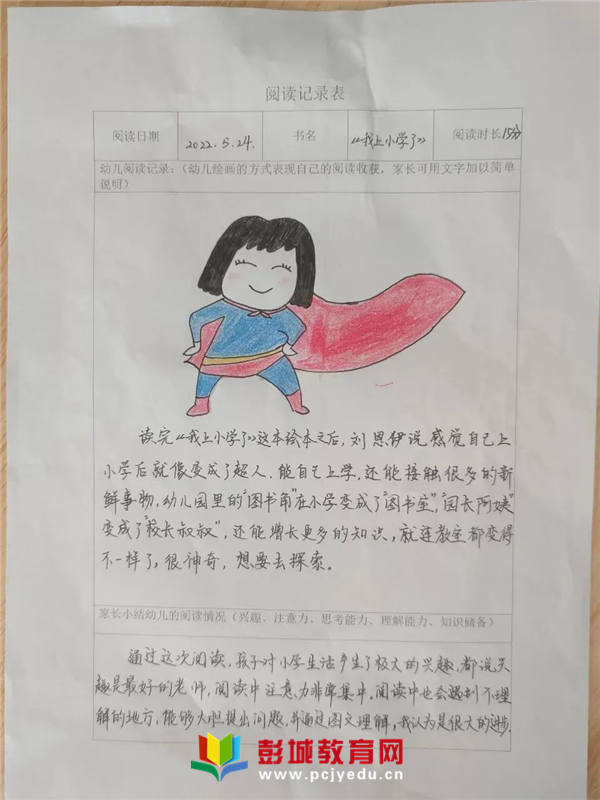 阅读记录表
阅读日期 2022.5.24. 书名 《我上小学了》 阅读时长 15分
幼儿阅读记录：（幼儿绘画的方式表现自己的阅读收获，家长可用文字加以简单
说明）
读完《我上小学了》这本绘本之后，刘恩伊说感觉自己上
小学后就像变成了超人，能自己上学，还能接触很多的新
鲜事物，幼儿园里的"图书角"在小学变成了"图书室"，"园长阿姨"
变成了"校长叔叔"，还能增长更多的知识，就连教室都变得
不一样了，很神奇，想要去探索。
家长小结幼儿的阅读情况（兴趣、注意力、思考能力、理解能力、知识储备）
通过这次阅读，孩子对小学生活产生了极大的兴趣，都说兴
趣是最好的老师，阅读中注意力非常集中，阅读中也会遇到不理
解的地方，能够大胆提出问题，并通过图文理解，我认为是很大的进步。
彭城教育网
www.pcjyedu.cn